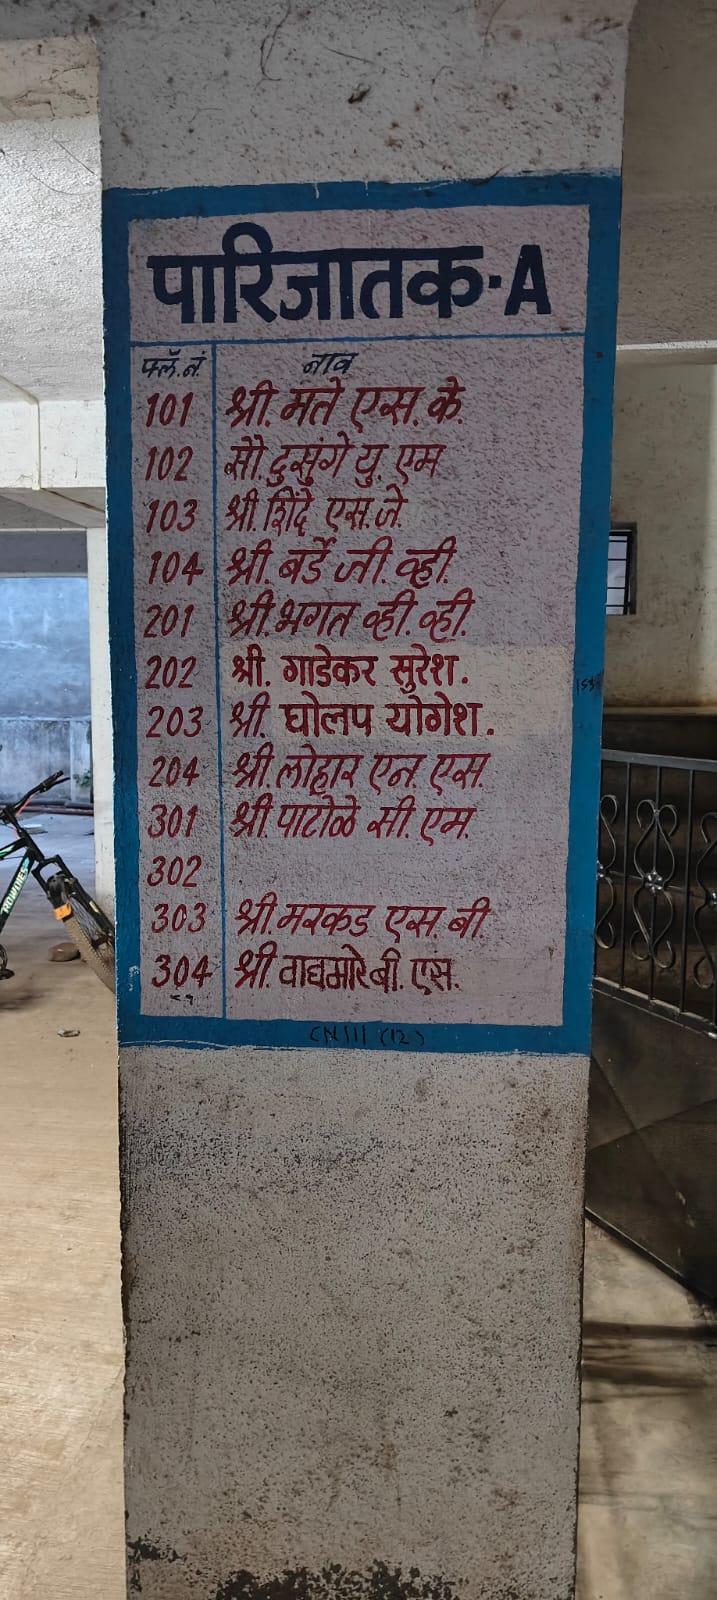 पारिजातक-A
फ्लॅ.नं. नाव
101 श्री. मते एस. के.
102 सौ. दुसुंगे यु. एम
103 श्री. शिंदे एस. जे.
104 श्री. बर्डे जी. व्ही.
201 श्री. भगत व्ही. व्ही.
202 श्री. गाडेकर सुरेश.
203 श्री. घोलप योगेश.
204 श्री. लोहार एन. एस.
301 श्री. पाटोळे सी. एम.
302
303 श्री. मरकड एस. बी.
304 श्री. वाघमारे बी. एस.
(12)
ROWDIES